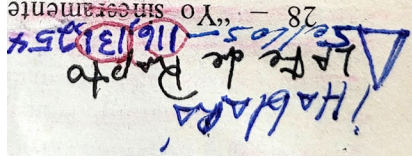 ¡Hablará
La Fe de Rapto
Sellos – 116, 131, 254
28 – “Yo sinceramente